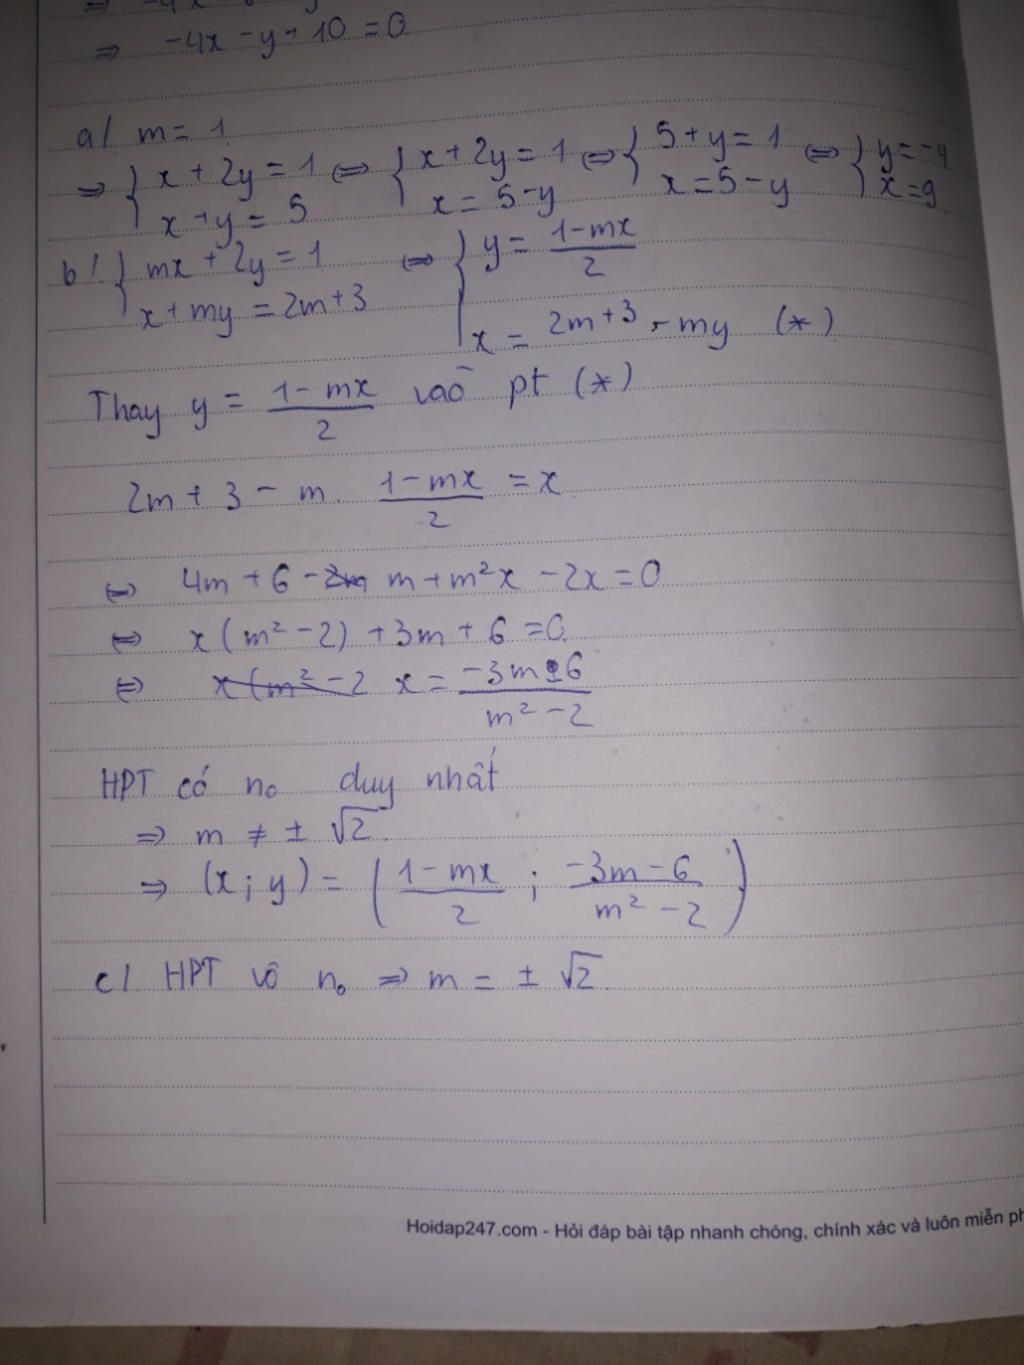 ⇒ -4x - y + 10 = 0
a/ m = 1
⇒ { x + 2y = 1 ⇔ { x + 2y = 1 ⇔ { 5 + y = 1 ⇔ { y = -4
x + y = 5 x = 5 - y x = 5 - y x = 9
b/ { mx + 2y = 1 ⇔ { y = (1 - mx)/2
x + my = 2m + 3 x = 2m + 3 - my (*)
Thay y = (1 - mx)/2 vào pt (*)
2m + 3 - m . (1 - mx)/2 = x
⇔ 4m + 6 - m + m²x - 2x = 0
⇔ x (m² - 2) + 3m + 6 = 0
⇔ x(m² - 2 x = (-3m - 6)/(m² - 2)
HPT có n₀ duy nhất
⇒ m ≠ ± √2
⇒ (x ; y) = ( (1 - mx)/2 ; (-3m - 6)/(m² - 2) )
c/ HPT vô n₀ ⇒ m = ± √2
Hoidap247.com - Hỏi đáp bài tập nhanh chóng, chính xác và luôn miễn ph